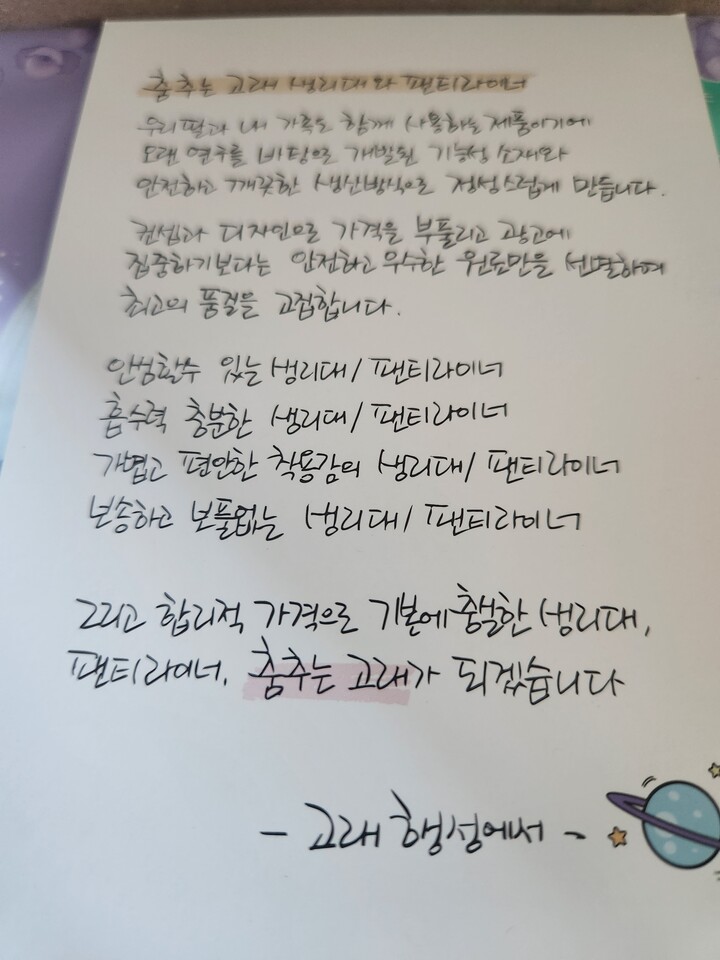 춤추는 고래 생리대와 팬티라이너
우리 딸과 내 가족도 함께 사용하는 제품이기에
오랜 연구를 바탕으로 개발된 기능성 소재와
안전하고 깨끗한 생산방식으로 정성스럽게 만듭니다.
컨셉과 디자인으로 가격을 부풀리고 광고에
집중하기보다는 안전하고 우수한 원료만을 선별하여
최고의 품질을 고집합니다.
안심할수 있는 생리대/팬티라이너
흡수력 충분한 생리대/팬티라이너
가볍고 편안한 착용감의 생리대/팬티라이너
보송하고 보풀없는 생리대/팬티라이너
그리고 합리적 가격으로 기본에 충실한 생리대,
팬티라이너. 춤추는 고래가 되겠습니다
- 고래 행성에서 ~